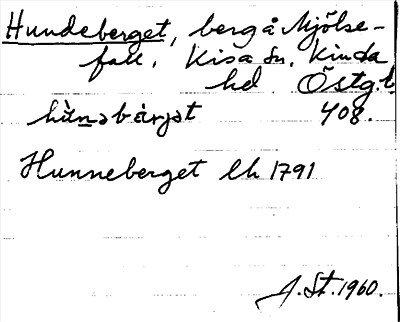 Hundeberget, berg å Mjölse-
fall, Kisa sn, Kinda
hd Östg.l.
hùnəbàrjət 408.
Hunneberget lh 1791
A.St. 1960.